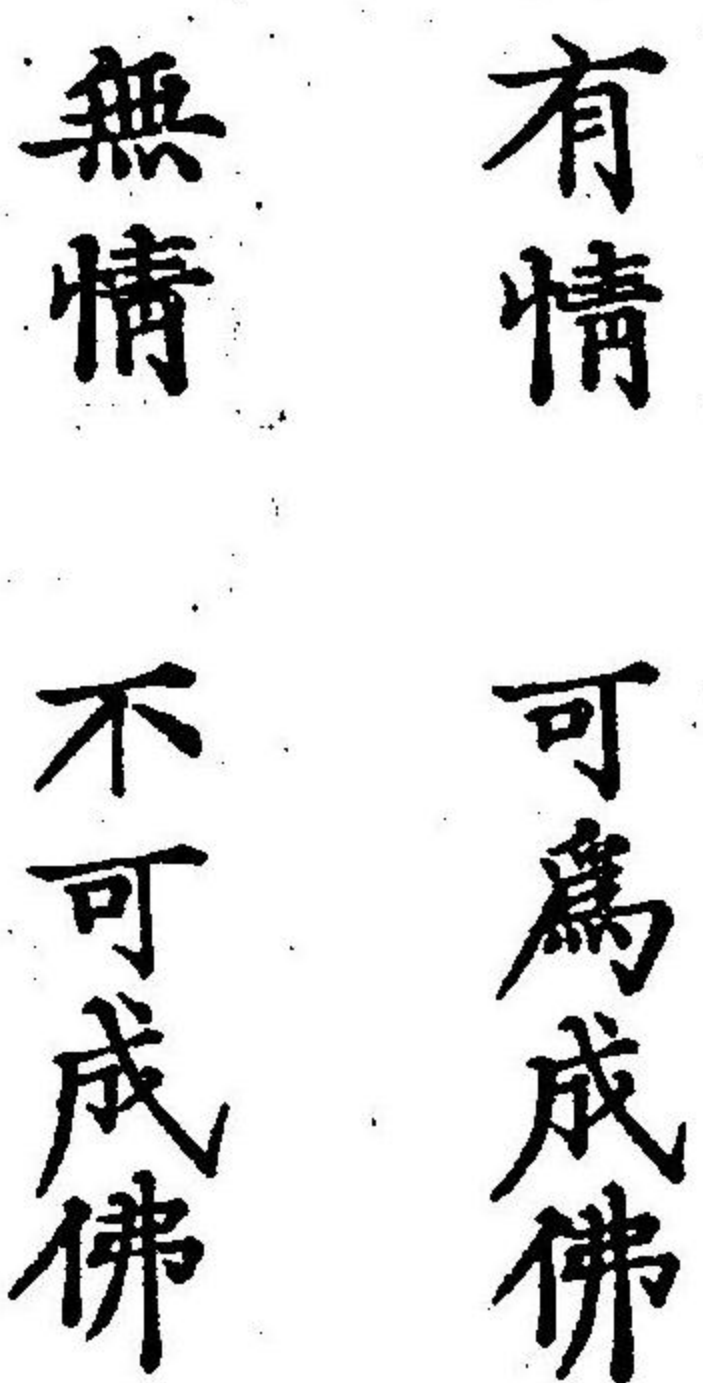 有情 可爲成佛
無情 不可成佛